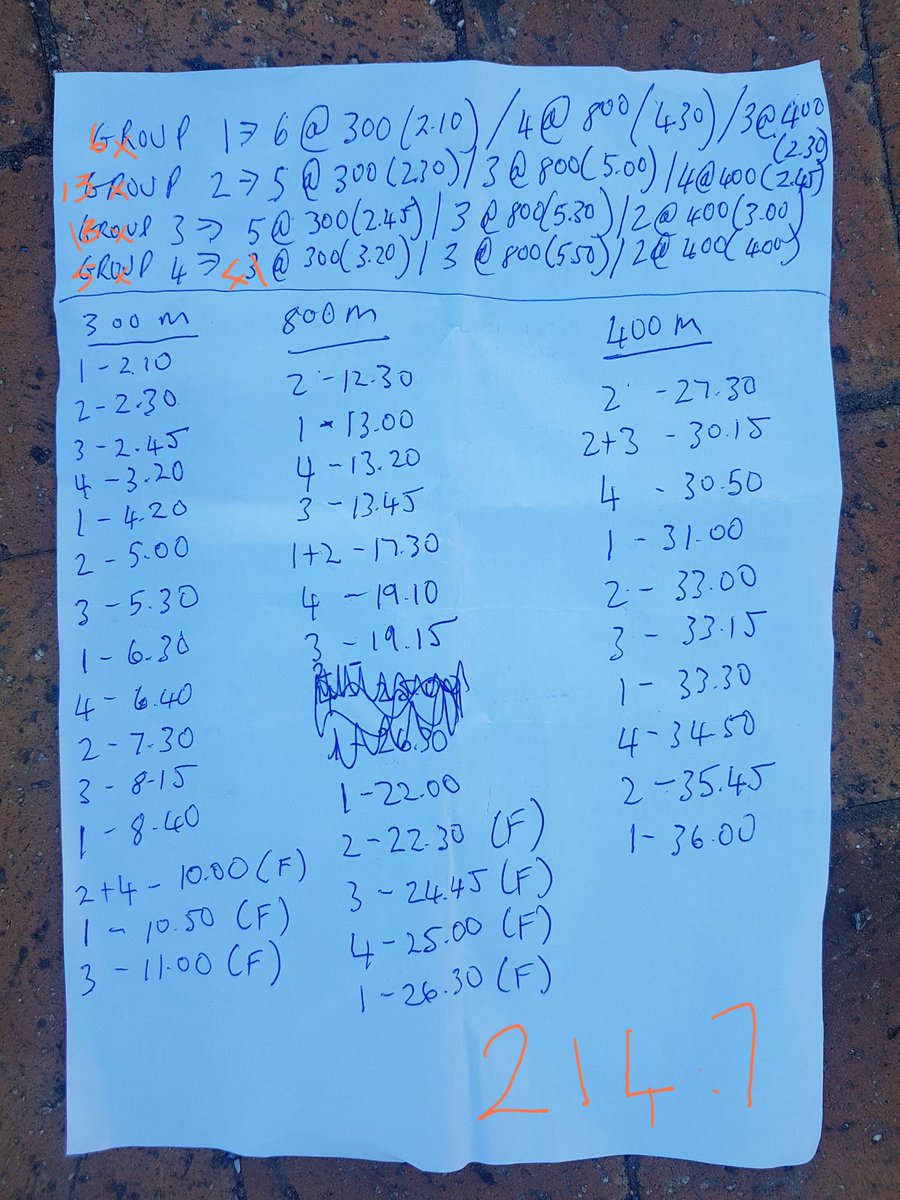 6x GROUP 1 => 6 @ 300 (2.10) / 4 @ 800 (4.30) / 3 @ 400 (2.30)
13 x GROUP 2 => 5 @ 300 (2.30) / 3 @ 800 (5.00) / 4 @ 400 (2.45)
x GROUP 3 => 5 @ 300 (2.45) / 3 @ 800 (5.30) / 2 @ 400 (3.00)
5 x GROUP 4 => 3 @ 300 (3.20) / 3 @ 800 (550) / 2 @ 400 (400)
300 m
1 - 2.10
2 - 2.30
3 - 2.45
4 - 3.20
1 - 4.20
2 - 5.00
3 - 5.30
1 - 6.30
4 - 6.40
2 - 7.30
3 - 8.15
1 - 8.40
2+4 - 10.00 (F)
1 - 10.50 (F)
3 - 11.00 (F)
800 m
2 - 12.30
1 - 13.00
4 - 13.20
3 - 13.45
1+2 - 17.30
4 - 19.10
3 - 19.15
1 - 22.00
2 - 22.30 (F)
3 - 24.45 (F)
4 - 25.00 (F)
1 - 26.30 (F)
400 m
2 - 27.30
2+3 - 30.15
4 - 30.50
1 - 31.00
2 - 33.00
3 - 33.15
1 - 33.30
4 - 34.50
2 - 35.45
1 - 36.00
214.7